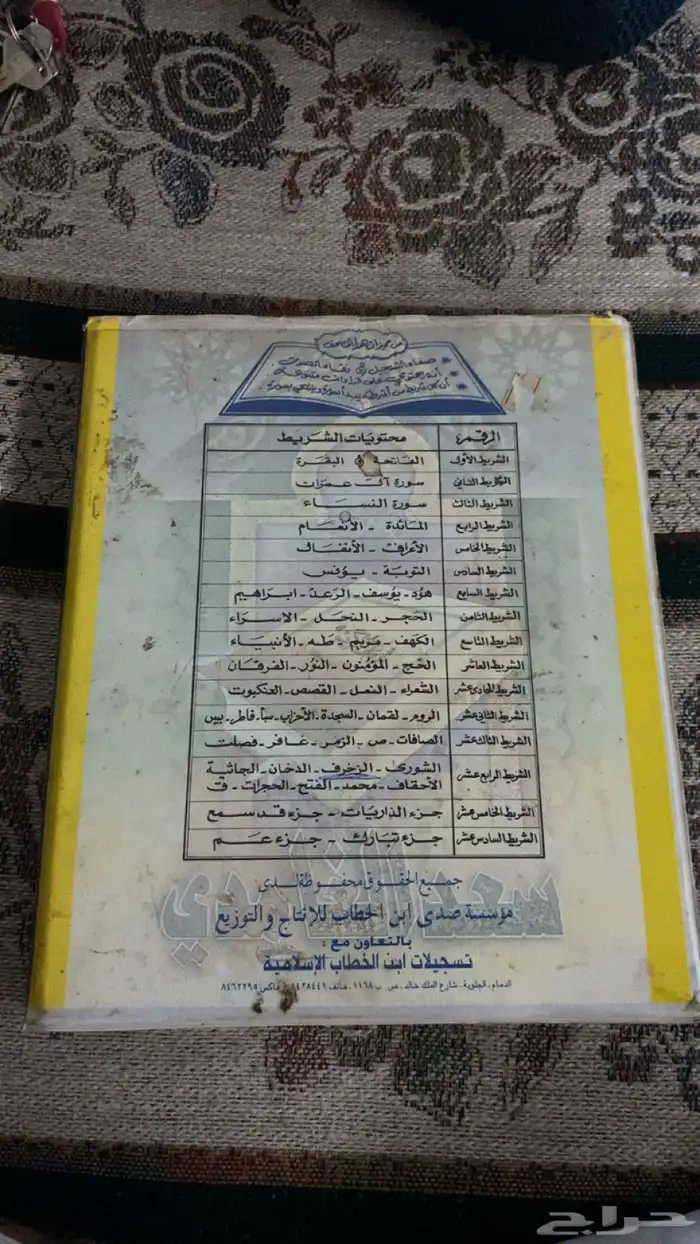 من مميزات هذا المصحف
* صفاء التسجيل و نقاء الصوت
* أنه يحتوي على قراءات متنوعة
* أن كل شريط من أشرطته يبدأ بسورة وينتهي بسورة
الرقم: محتويات الشريط
الشريط الأول الفاتحة البقرة
الشريط الثاني سورة آل عمران
الشريط الثالث سورة النساء
الشريط الرابع المائدة - الأنعام
الشريط الخامس الأعراف - الأنفال
الشريط السادس التوبة - يونس
الشريط السابع هود - يوسف - الرعد - ابراهيم
الشريط الثامن الحجر - النحل - الاسراء
الشريط التاسع الكهف - مريم - طه - الأنبياء
الشريط العاشر الحج - المؤمنون - النور - الفرقان
الشريط الحادي عشر الشعراء - النمل - القصص - العنكبوت
الشريط الثاني عشر الروم - لقمان - السجدة - الأحزاب - سبأ - فاطر - يس
الشريط الثالث عشر الصافات - ص - الزمر - غافر - فصلت
الشريط الرابع عشر الشورى - الزخرف - الدخان - الجاثية
الأحقاف - محمد - الفتح - الحجرات - ق
الشريط الخامس عشر جزء الذاريات - جزء قد سمع
الشريط السادس عشر جزء تبارك - جزء عم
سعد الغامدي
جميع الحقوق محفوظة لدى
مؤسسة صدى ابن الخطاب للإنتاج والتوزيع
بالتعاون مع :
تسجيلات ابن الخطاب الإسلامية
الدمام - الجلوية - شارع الملك خالد - ص ب ١١٦٨ - هاتف ٨٤٣٨٤٤١ - فاكس ٨٤٦٢٢٩٥
حراج